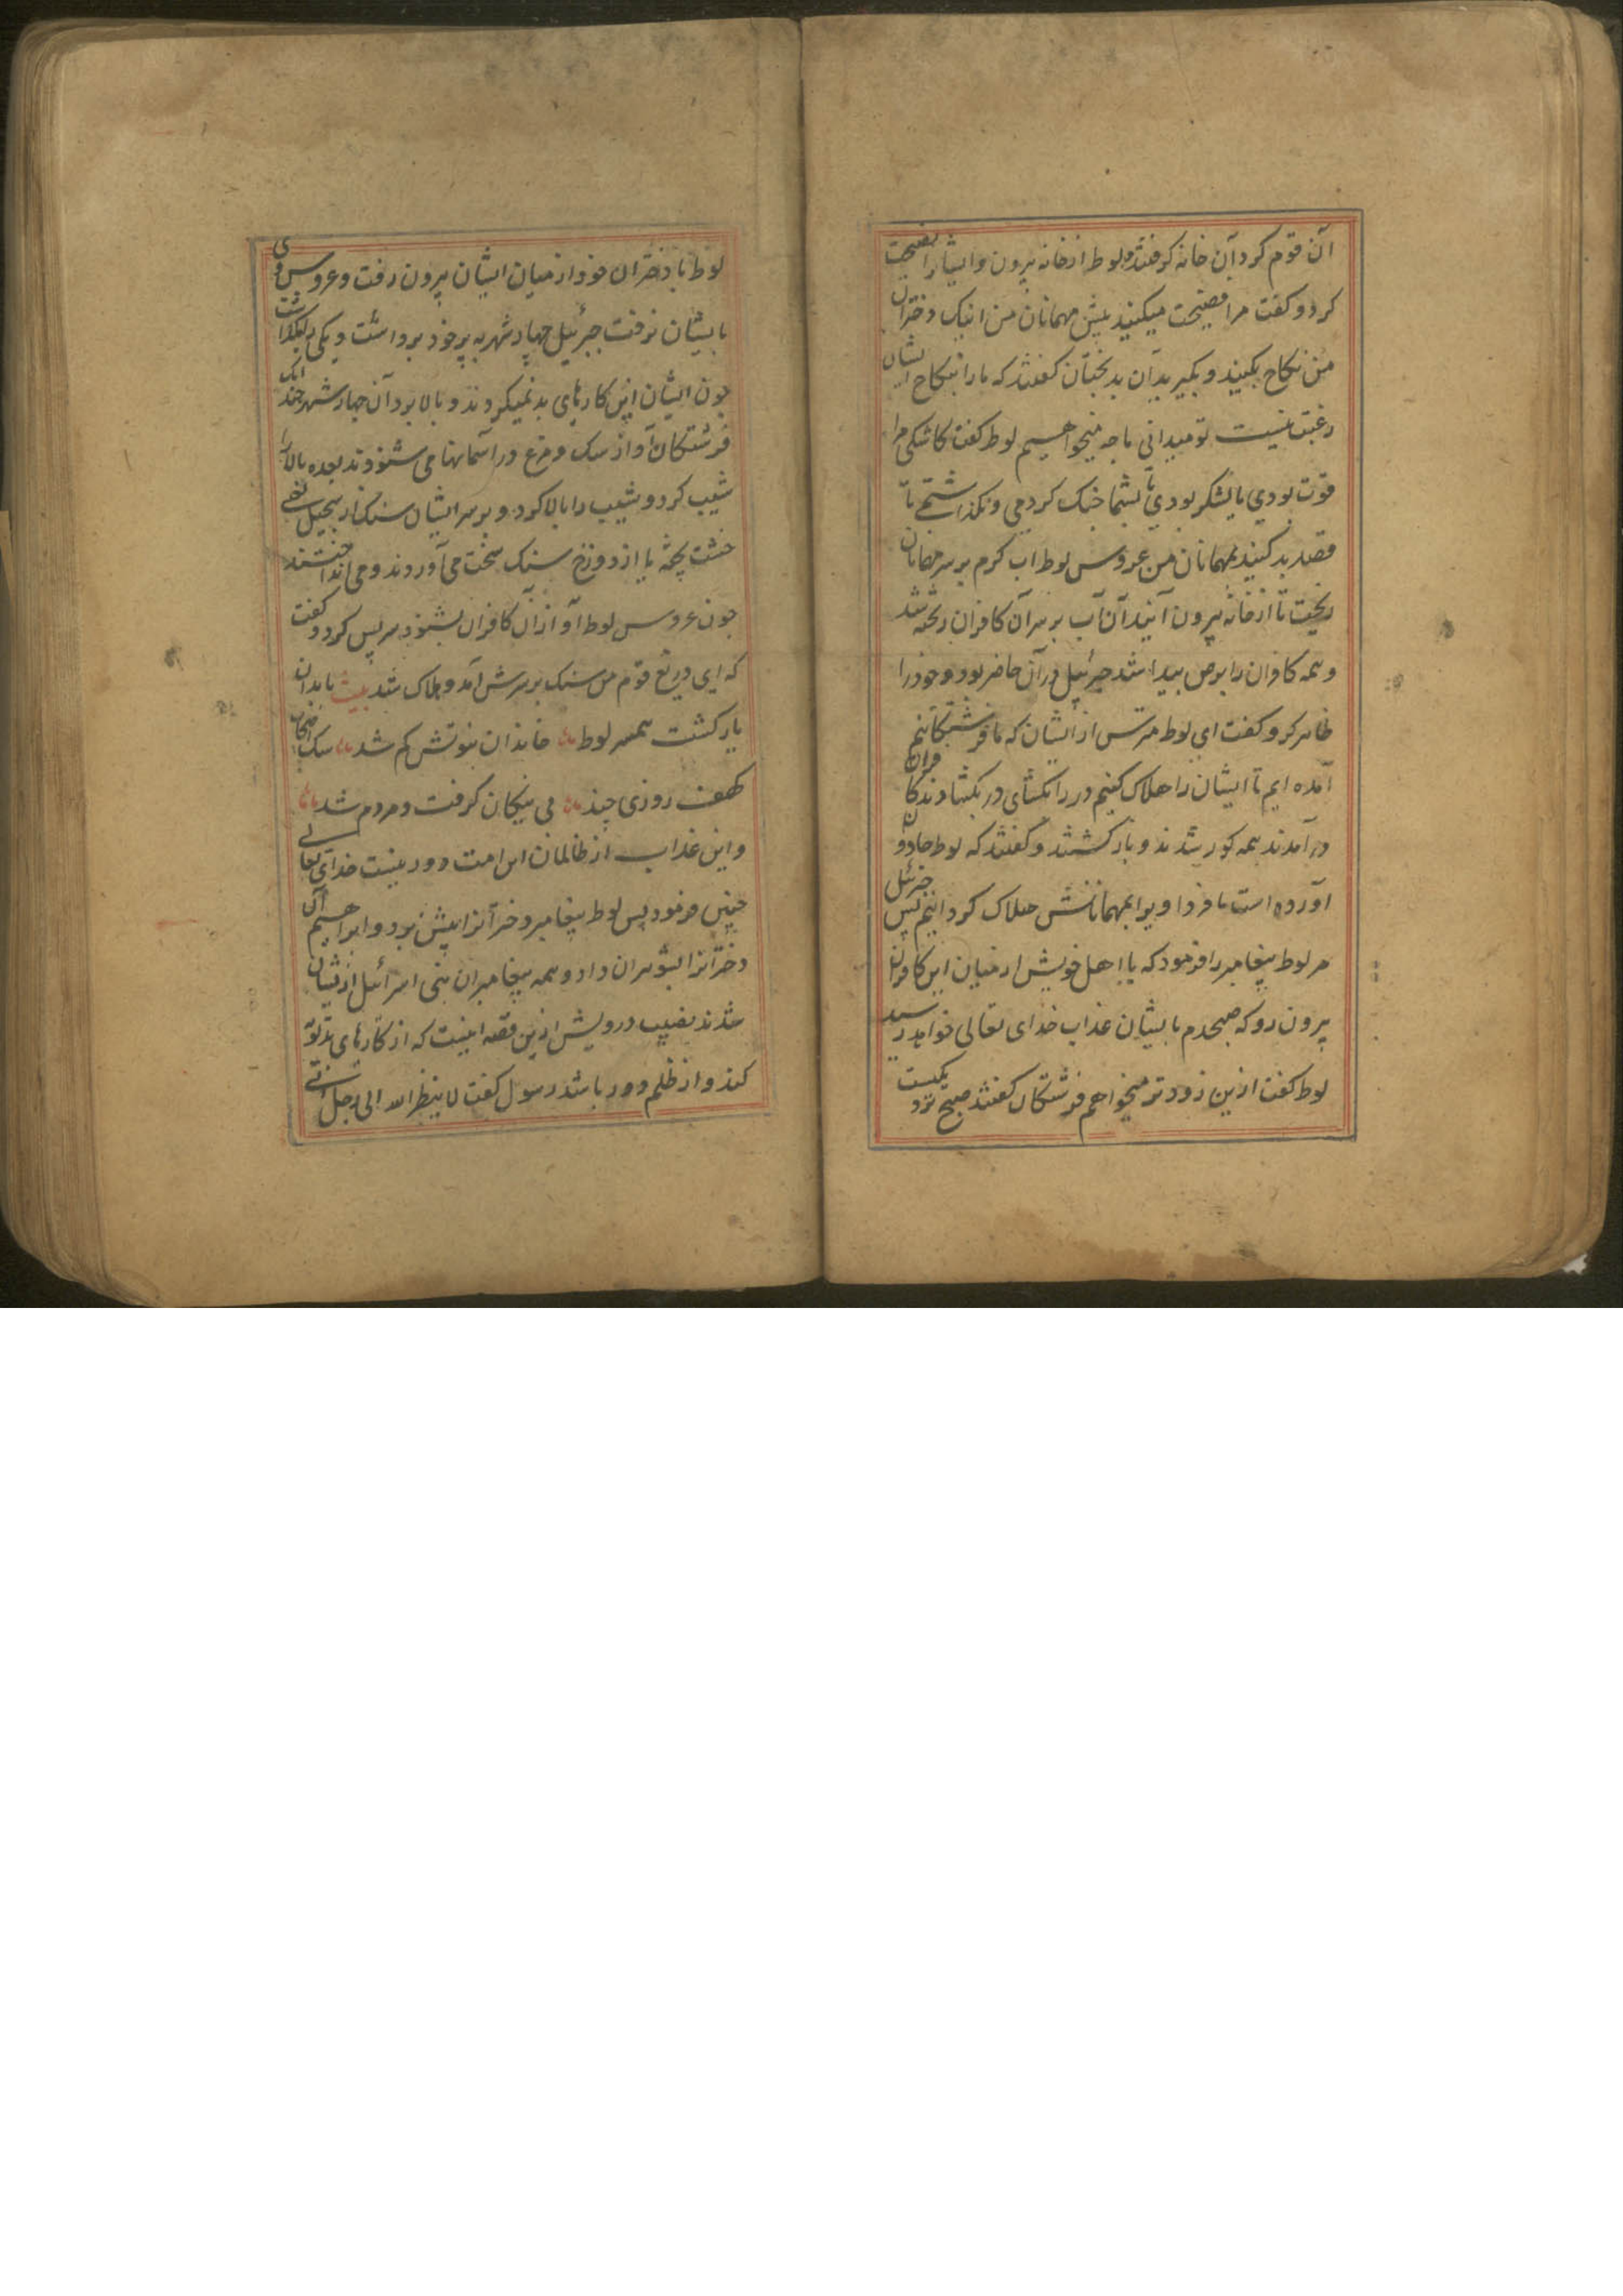 آن قوم کرد آن خانه کرفتند و لوط از خانه بیرون و ایشانرا نصیحت
کرد و کفت مرا فضیحت میکنید پیش مهمانان من اینک دختران
من نکاح بکنید و بکیرید آن بدبختان کفتند که ما را بنکاح ایشان
رغبت نیست تو میدانی ما چه میخواهیم لوط کفت کاشکی مرا
قوت بودی یا لشکر بودی تا بشما جنک کردمی و نکذاشتمی تا
قصد بد کنید بمهمانان من عروس لوط آب کرم بر سر مهمانان
ریخت تا از خانه بیرون آیند آن آب بر سر آن کافران ریخته شد
و همه کافران را برص پیدا شد جبرئیل در آن حاضر بود و خود را
ظاهر کرد و کفت ای لوط مترس از ایشان که ما فرشتکانیم
آمده ایم تا ایشان را هلاک کنیم در را بکشای در بکشادند کافران
در آمدند همه کور شدند و باز کشتند و کفتند که لوط جادوان
آورده است ما فردا ویرا بمهمانانش هلاک کردانیم پس جبرئیل
مر لوط پیغامبر را فرمود که با اهل خویش از میان این کافران
بیرون رو که صبحدم بایشان عذاب خدای تعالی خواهد رسید
لوط کفت ازین زودتر میخواهم فرشتکان کفتند صبح نزدیکست
لوط با دختران خود از میان ایشان بیرون رفت و عروس وی
بایشان نرفت جبرئیل چهار شهر به پر خود برداشت و یکی بکذاشت
چون ایشان این کارهای بد نمیکردند و بالا برد آن چهار شهر چندانک
فرشتکان آواز سک و مرغ در آسمانها می شنودند بعده بالا را
شیب کرد و شیب را بالا کرد و بر سر ایشان سنک از سجیل یعنی
خشت پخته یا از دوزخ سنک سخت می آوردند و می انداختند
چون عروس لوط آواز آن کافران بشنود سر پس کرد و کفت
که ای دریغ قوم من سنک بر سرش آمد و هلاک شد بیت با بدان
یار کشت همسر لوط خاندان نبوتش کم شد سک اصحاب
کهف روزی چند پی نیکان کرفت و مردم شد
و این عذاب از ظالمان این امت دور نیست خدای تعالی
چنین فرمود پس لوط پیغامبر دخترانرا پیش برد و ابراهیم آن
دخترانرا بشوهران داد و همه پیغامبران بنی اسرائیل از ایشان
شدند نصیب درویش ازین قصه اینست که از کارهای بد توبه
کند و از ظلم دور باشد رسول کفت لا ینظر الله الی رجل اتی